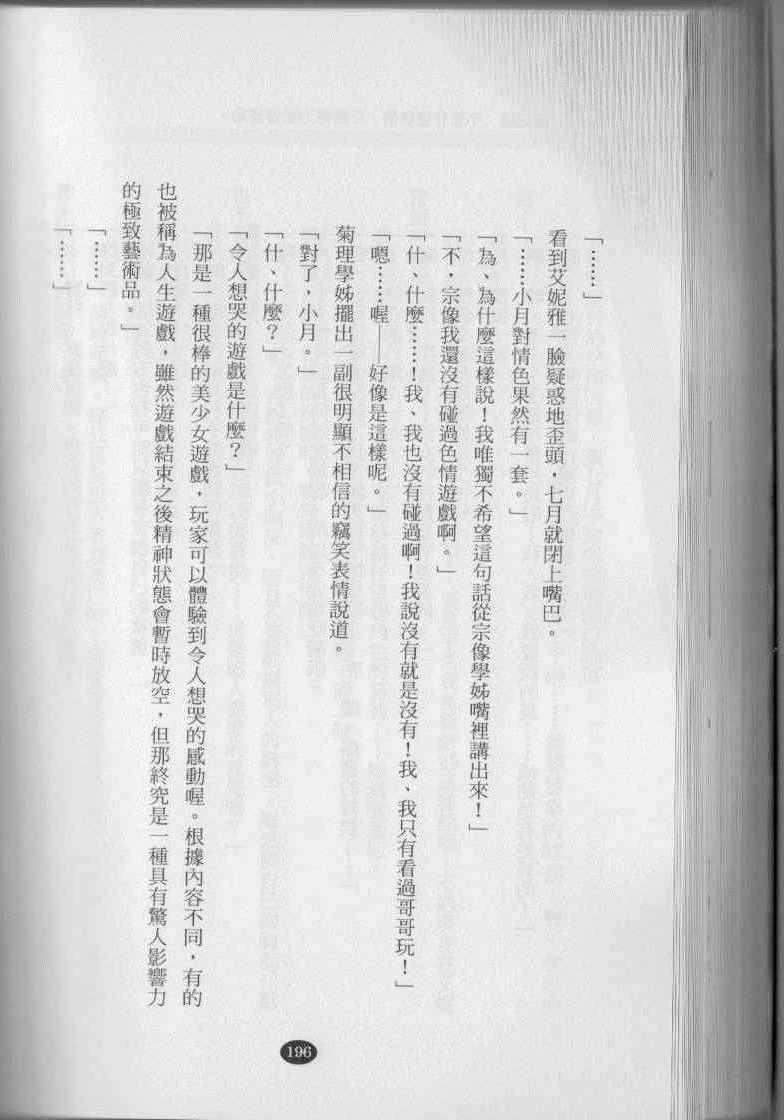 「……」
看到艾妮雅一臉疑惑地歪頭，七月就閉上嘴巴。
「……小月對情色果然有一套。」
「為、為什麼這樣說！我唯獨不希望這句話從宗像學姊嘴裡講出來！」
「不，宗像我還沒有碰過色情遊戲啊。」
「什、什麼……！我、我也沒有碰過啊！我說沒有就是沒有！我、我只有看過哥哥玩！」
「嗯……喔──好像是這樣呢。」
菊理學姊擺出一副很明顯不相信的竊笑表情說道。
「對了，小月。」
「什、什麼？」
「令人想哭的遊戲是什麼？」
「那是一種很棒的美少女遊戲，玩家可以體驗到令人想哭的感動喔。根據內容不同，有的
也被稱為人生遊戲，雖然遊戲結束之後精神狀態會暫時放空，但那終究是一種具有驚人影響力
的極致藝術品。」
「……」
「……」
196